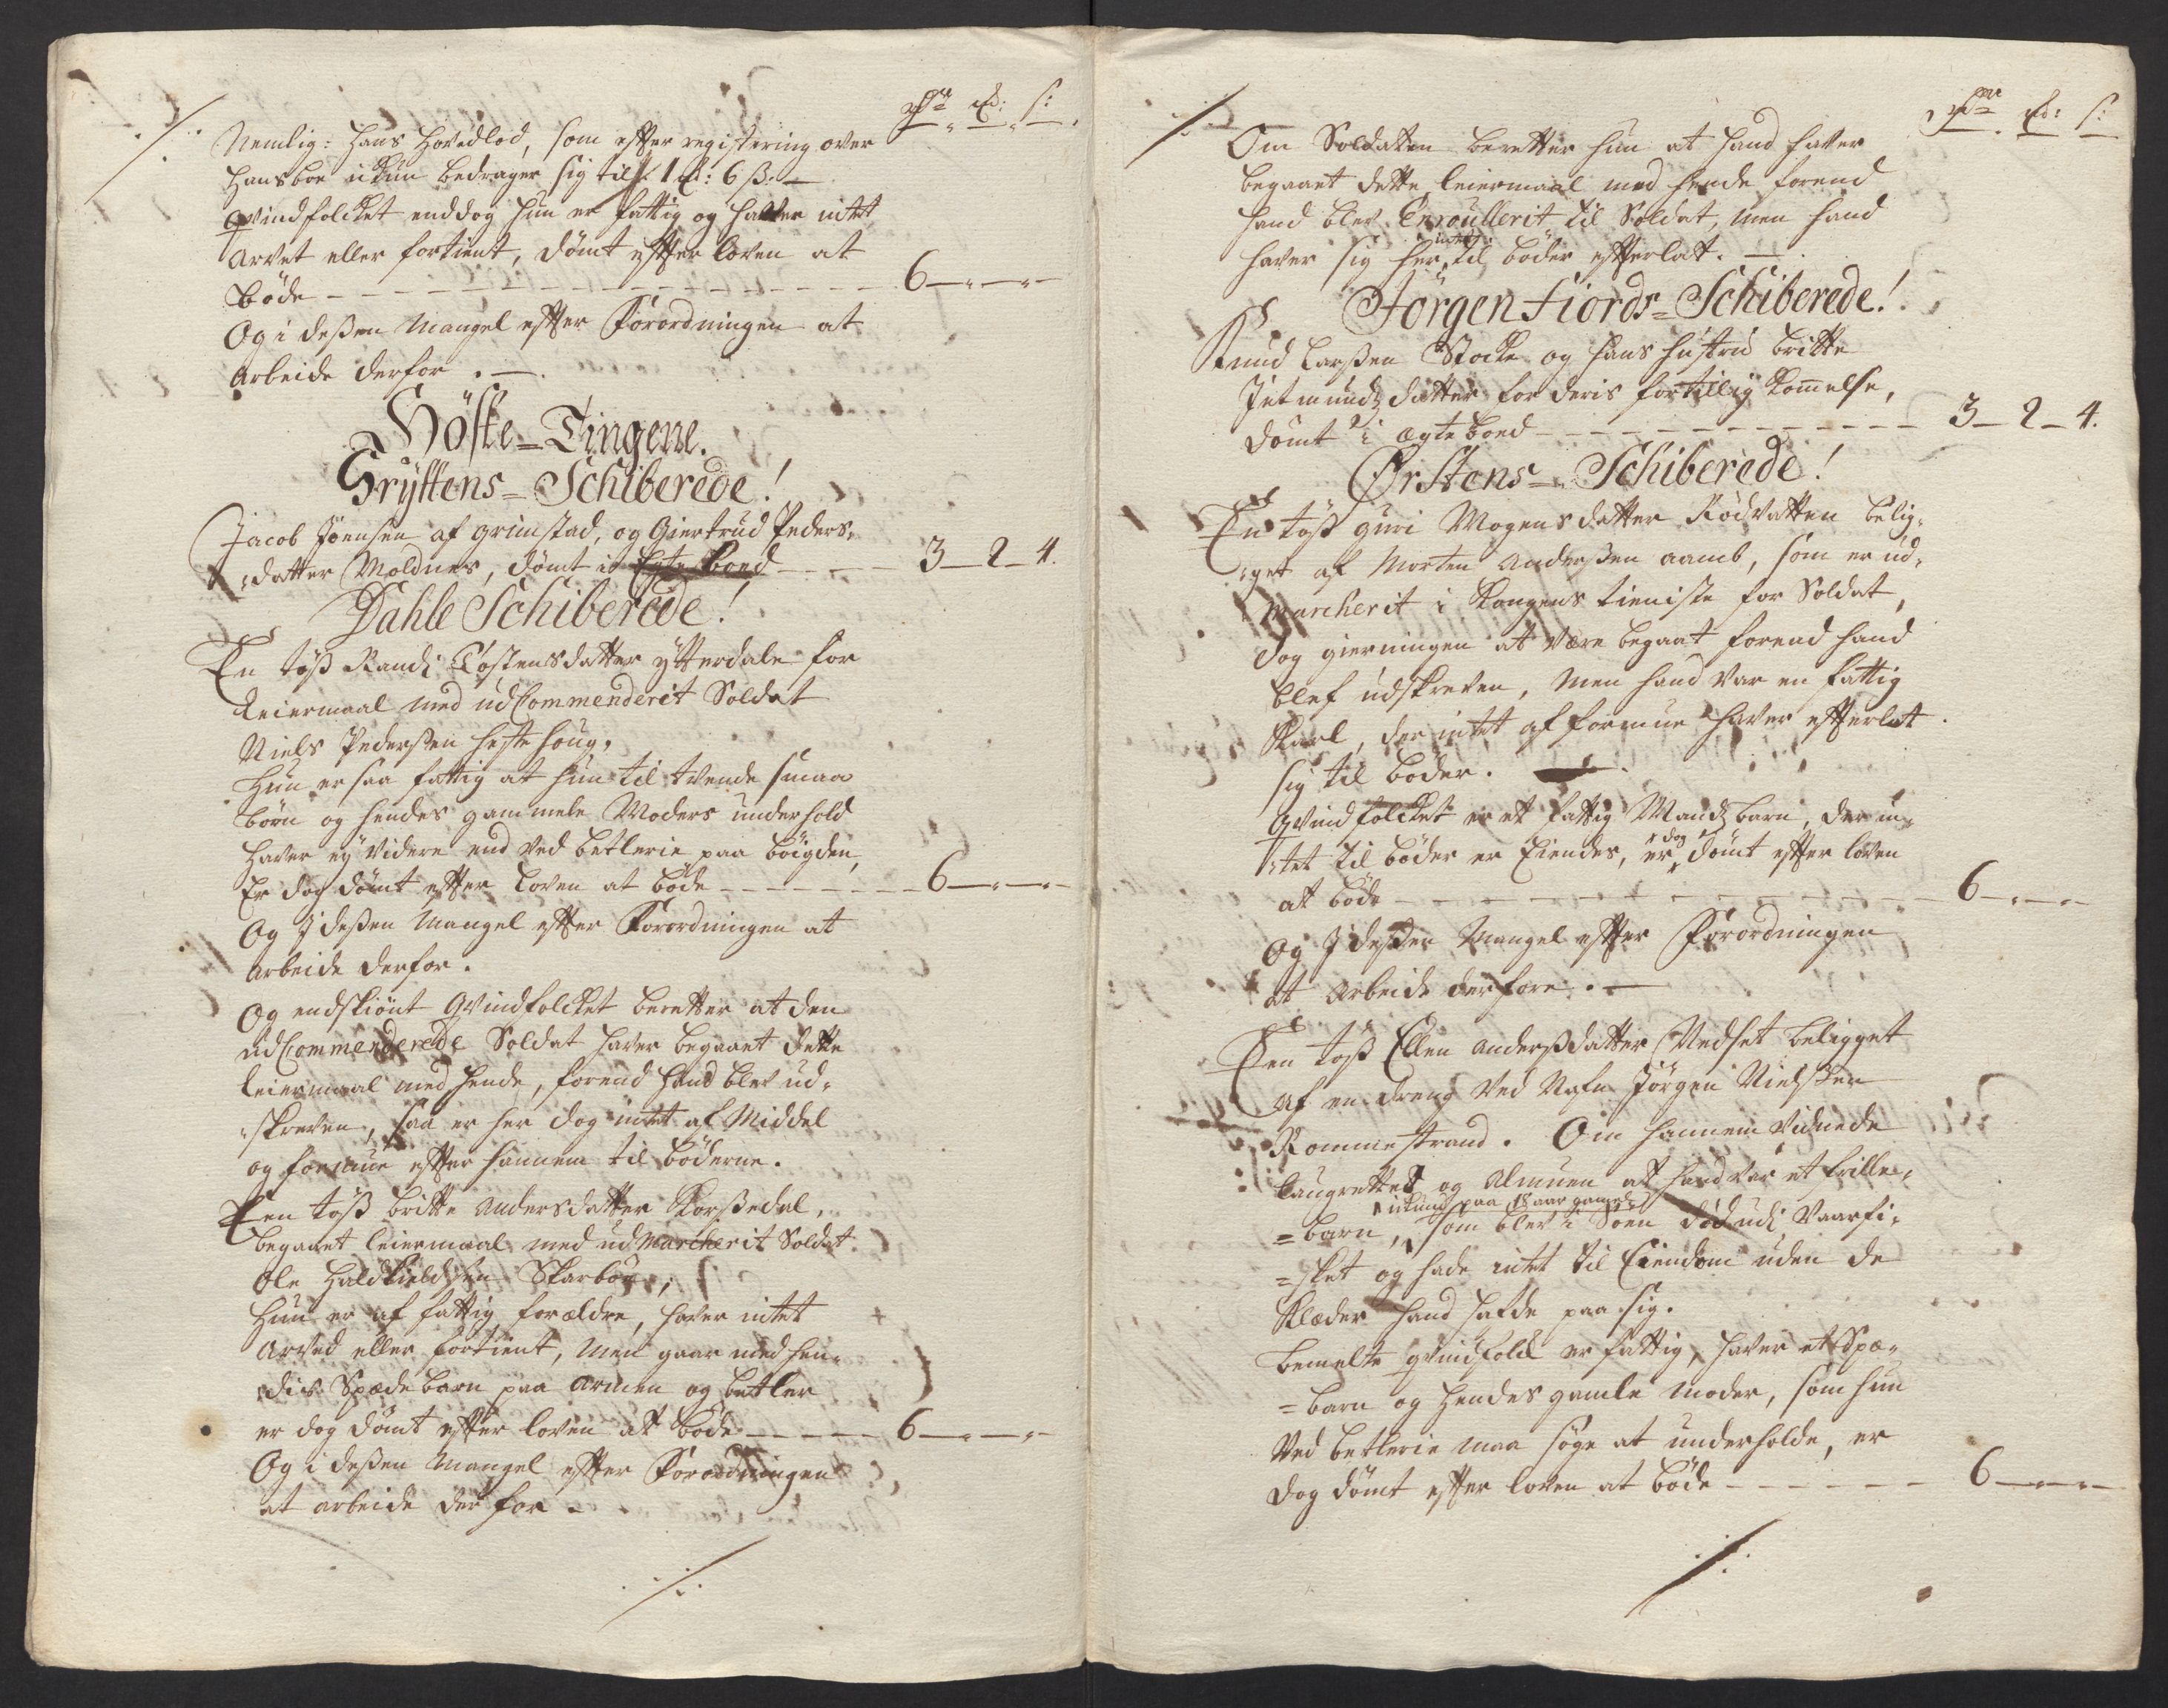 ./. Rdr mk: s:
Nemlig: hans hovedlod, som effter registering over
hans boe ickun bedrager sig til 1 mk: 6 ß: —
Qvindfolcket enddog hun er fattig og hafver intet
arvet eller fortient, dömt effter loven at
böde - - - 6 — " — " —
Og i deßen mangel effter Forordningen at
arbeide derfor. —
Höste=Tingene.
Gryttens=Schiberede!
Jacob Joensen af grimstad, og Giertrud Peders-
datter Moldnes, dömt i Egte boed - - - 3 — 2 — 4.
Dahle Schiberede!
En töß Randi Tostensdatter ytterdale for
Leiermaal med udCommenderit Soldat
Niels Pederßen hestehoug,
Hun er saa fattig at hun til tvende smaa
börn og hendes gammele Moders underhold
haver ey videre end ved betlerie paa böigden,
Er dog dömt effter Loven at böde - - - 6 — " — " —
Og J deßen Mangel effter Forordningen at
arbeide derfor.
Og endskiönt Qvindfolcket beretter at den
udCommenderede Soldat haver begaaet dette
leiermaal med hende, forend hand blev ud-
skreven, saa er her dog intet af Middel
og formue effter hannem til böderne.
Een töß britte Andersdatter Korßedal,
begaaet leiermaal med udmarcherit Soldat
Ole Haldkieldsen Skarbön,
Hun er af fattig forældre, haver intet
arved eller fortient, men gaar med hen-
dis Spæde barn paa armen og betler
er dog dömt effter loven at böde - - - 6 — " — " —
Og i deßen mangel effter Forordningen
at arbeide der for -
./.
./. Rdr mk: s:
Om Soldaten beretter hun at hand haver
begaaet dette leiermaal med hende forend
hand blev Enroullerit til Soldat, men hand
haver sig her intet til böder effterlat. —
Jörgen Fiords=Schiberede!
Knud Larßen Stocke og hans hustru britte
Jetmundsdatter for deris fortillig komelse,
dömt i ægte boed - - - 3 — 2 — 4.
Ørstens=Schiberede!
En töß guri Mogensdatter Rödvatten belig-
get af Morten Anderßen aamb, som er ud-
marcherit i Kongens tieniste for Soldat,
dog gierningen at være begaat forend hand
blef udskreven, men hand var en fattig
Karl, der intet af formue haver effterlat
sig til böder. —
Qvindfolcket er et fattig Mands barn, der in-
tet til böder er Eiendes, er dog dömt effter loven
at böde - - - 6 — " — " —
Og J deßen Mangel effter Forordningen
at arbeide derfore. —
Een töß Ellen Anderßdatter Vedset beligget
af en dreng ved Nafn Jörgen Nielßen
Rommestrand. Om hannem vidnede
Laugrettet og Almuen at hand var et frille-
=barn, ickun paa 18 aar gamel som blev i Söen död udi Vaarfi-
=sket og hade intet til Eiendom uden de
Klæder hand hafde paa sig.
bemelte qvindfolck er fattig, haver et Spæ-
=barn og hendes gamle moder, som hun
ved betlerie maa söge at underholde, er
dog dömt effter loven at böde - - - 6 — " — " —
./.